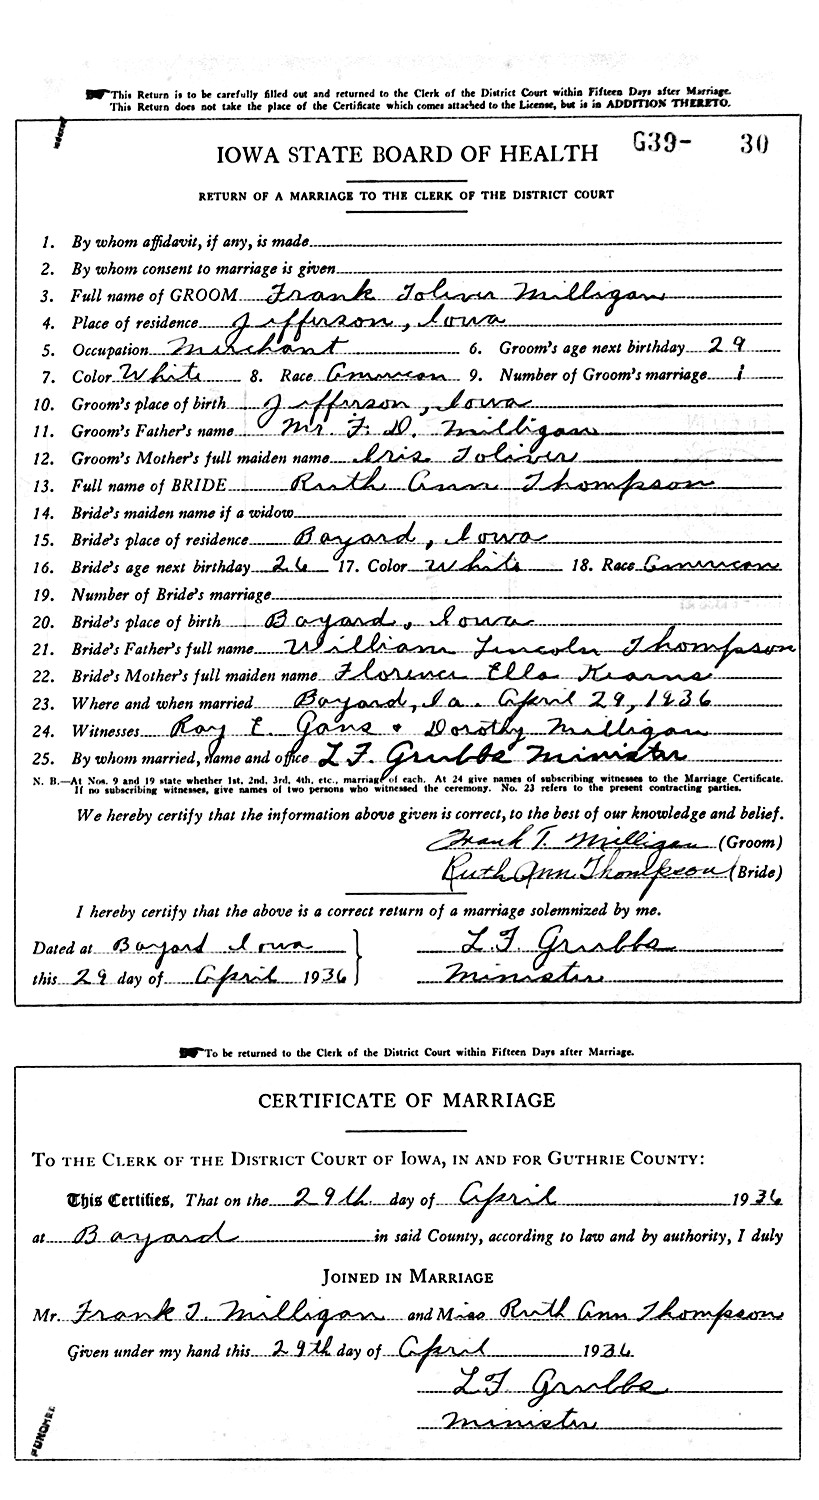 This Return is to be carefully filled out and returned to the Clerk of the District Court within Fifteen Days after Marriage.
This Return does not take the place of the Certificate which comes attached to the License, but is in ADDITION THERETO.
IOWA STATE BOARD OF HEALTH G39- 30
RETURN OF A MARRIAGE TO THE CLERK OF THE DISTRICT COURT
1. By whom affidavit, if any, is made
2. By whom consent to marriage is given
3. Full name of GROOM Frank Toliver Milligan
4. Place of residence Jefferson, Iowa
5. Occupation Merchant 6. Groom's age next birthday 29
7. Color White 8. Race American 9. Number of Groom's marriage 1
10. Groom's place of birth Jefferson, Iowa
11. Groom's Father's name Mr. F. D. Milligan
12. Groom's Mother's full maiden name Iris Toliver
13. Full name of BRIDE Ruth Ann Thompson
14. Bride's maiden name if a widow
15. Bride's place of residence Bayard, Iowa
16. Bride's age next birthday 26 17. Color White 18. Race American
19. Number of Bride's marriage
20. Bride's place of birth Bayard, Iowa
21. Bride's Father's full name William Lincoln Thompson
22. Bride's Mother's full maiden name Florence Ella Kearns
23. Where and when married Bayard, Ia. April 29, 1936
24. Witnesses Ray E. Gans & Dorothy Milligan
25. By whom married, name and office L F. Grubbs Minister
N. B.—At Nos. 9 and 19 state whether 1st, 2nd, 3rd, 4th, etc., marriage of each. At 24 give names of subscribing witnesses to the Marriage Certificate.
If no subscribing witnesses, give names of two persons who witnessed the ceremony. No. 23 refers to the present contracting parties.
We hereby certify that the information above given is correct, to the best of our knowledge and belief.
Frank T. Milligan (Groom)
Ruth Ann Thompson (Bride)
I hereby certify that the above is a correct return of a marriage solemnized by me.
Dated at Bayard Iowa L. F. Grubbs
this 29 day of April 1936 Minister
To be returned to the Clerk of the District Court within Fifteen Days after Marriage.
CERTIFICATE OF MARRIAGE
TO THE CLERK OF THE DISTRICT COURT OF IOWA, IN AND FOR GUTHRIE COUNTY:
This Certifies, That on the 29th day of April 1936
at Bayard in said County, according to law and by authority, I duly
JOINED IN MARRIAGE
Mr. Frank T. Milligan and Miss Ruth Ann Thompson
Given under my hand this 29th day of April 1936
L F. Grubbs
Minister